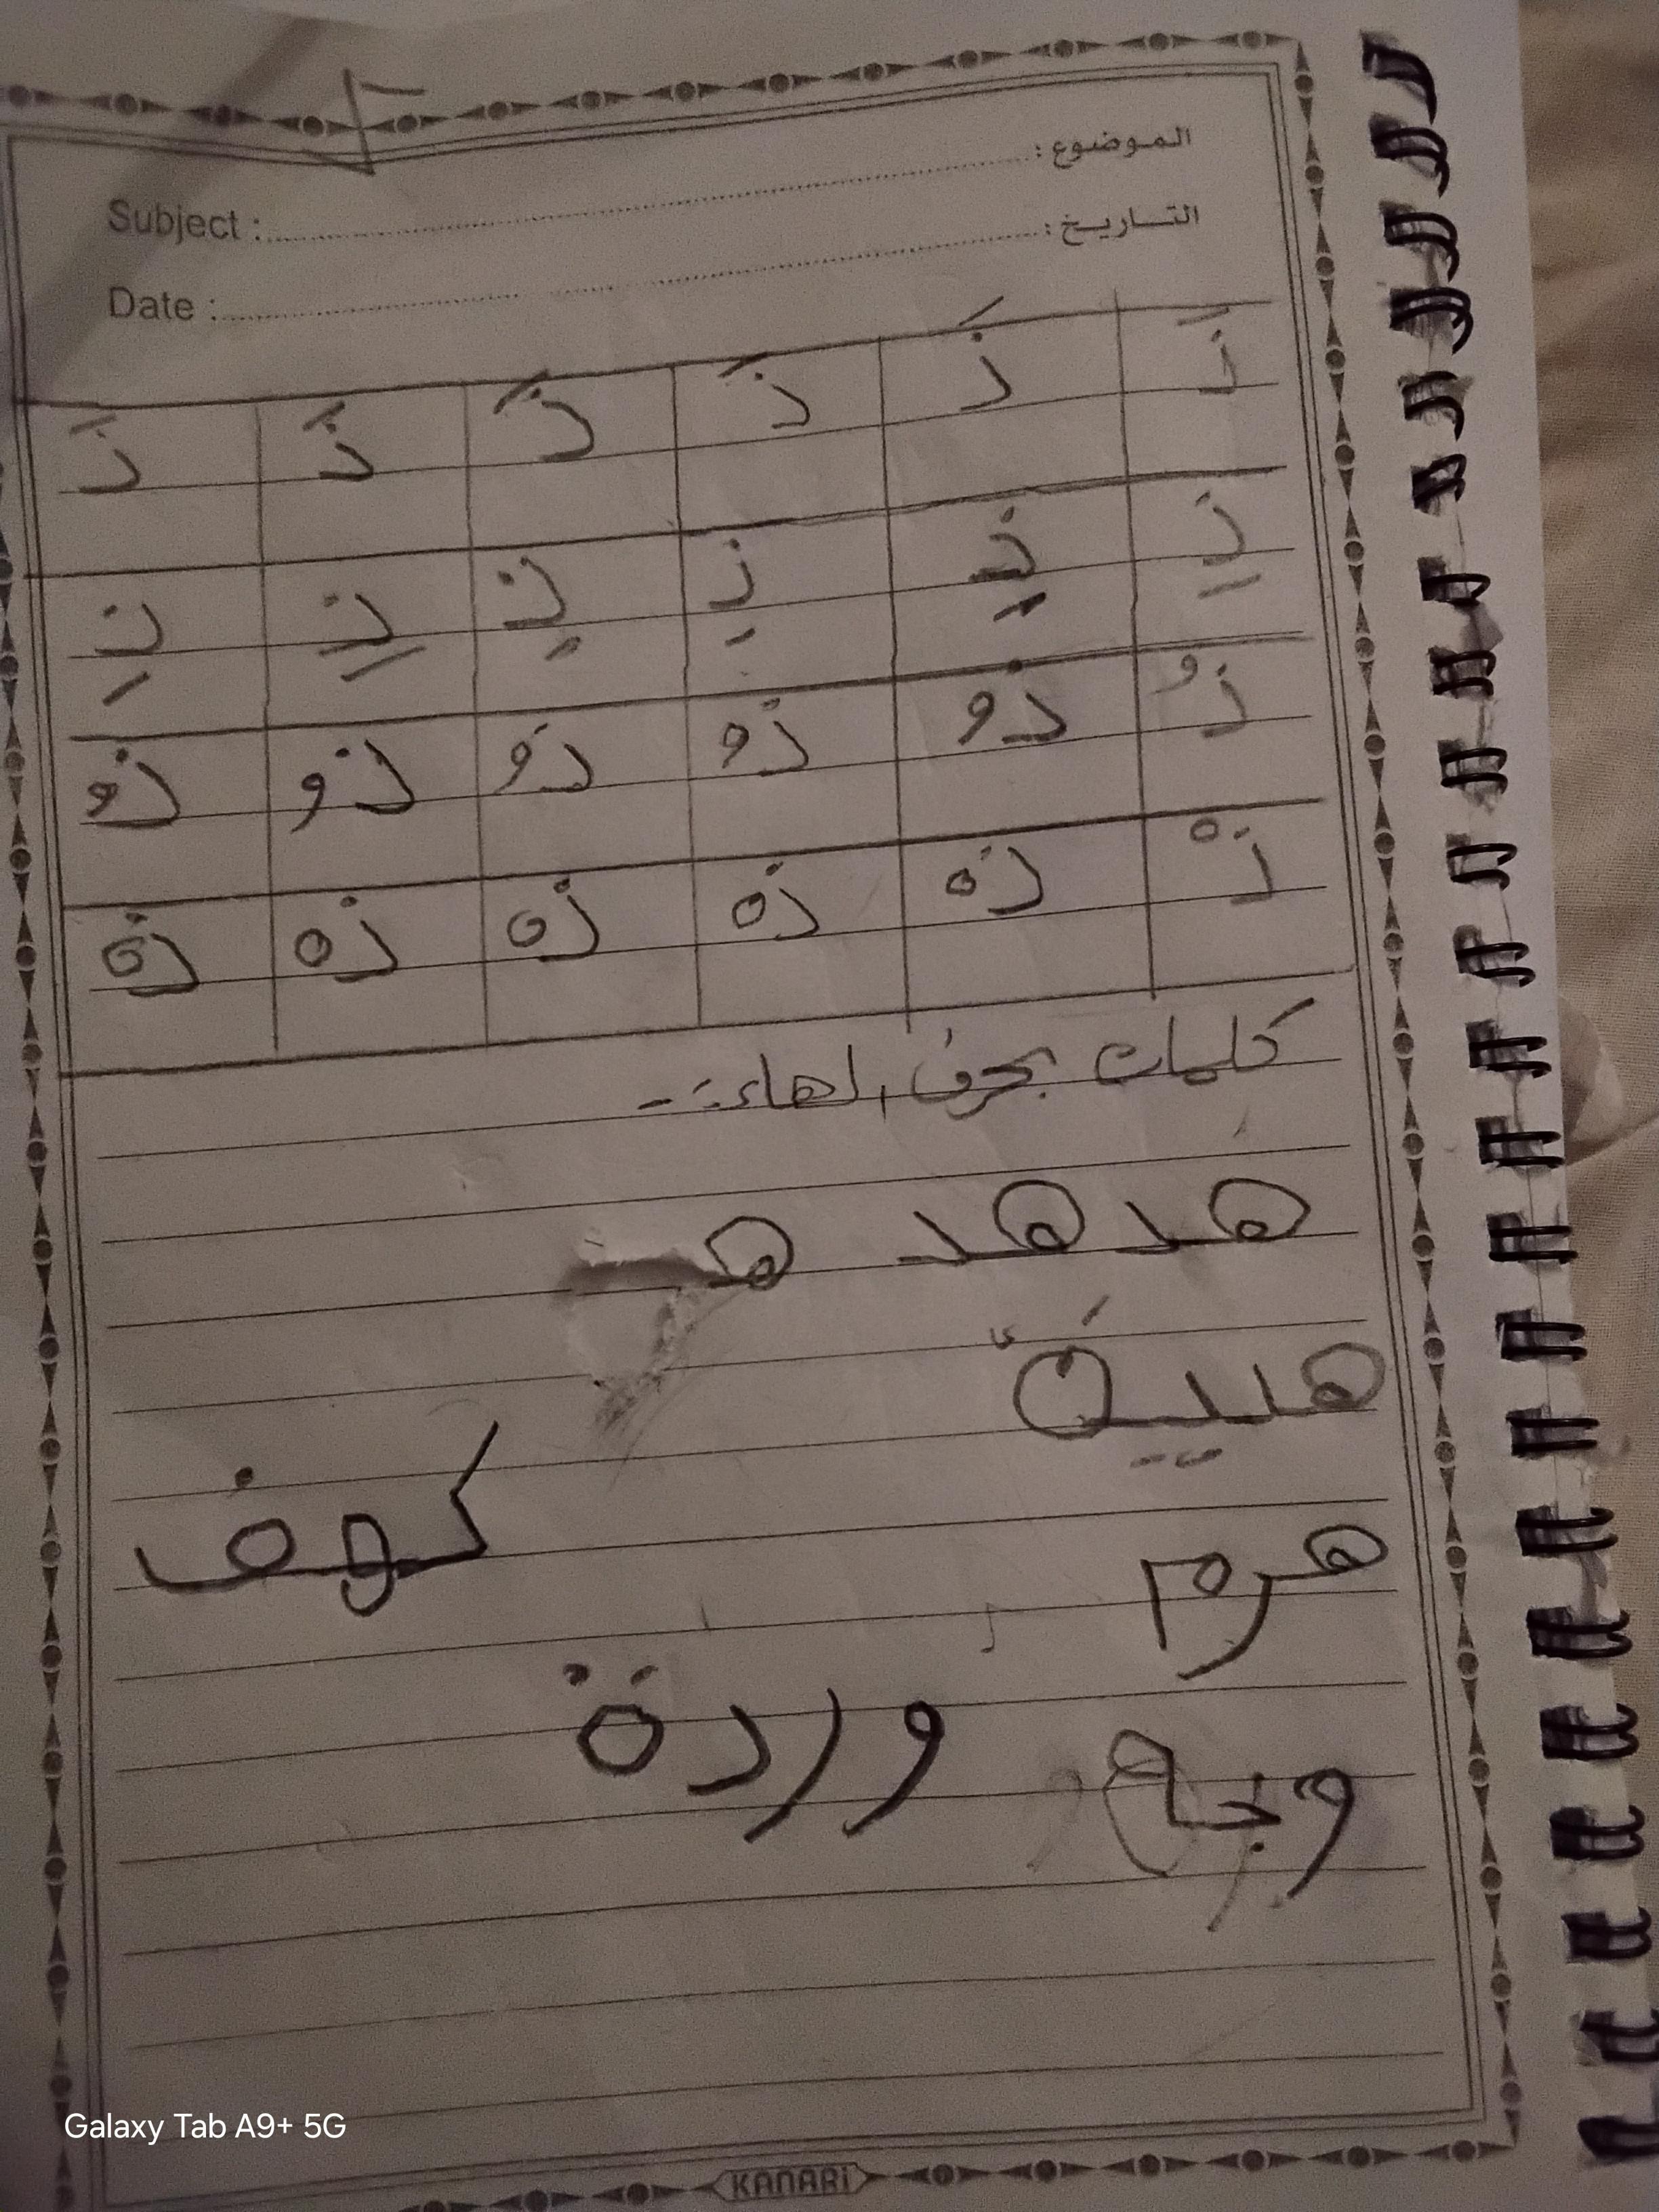 الموضوع :
Subject :
التاريخ :
Date :
ذَ ذَ ذَ ذَ ذَ ذَ
ذِ ذِ ذِ ذِ ذِ ذِ
ذُ ذُ ذُ ذُ ذُ ذُ
ذْ ذْ ذْ ذْ ذْ ذْ
كلمات بحرف الهاء :-
هدهد هـ
هرم كهف
وردة
وجه
KANARi
Galaxy Tab A9+ 5G